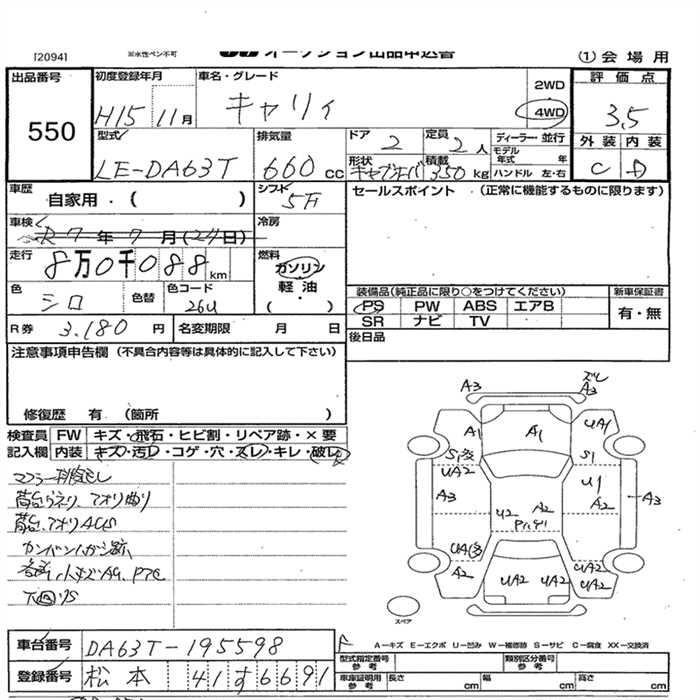 [20941
※水性ペン不可
オークション出品申込書
① 会場用
出品番号
550
初度登録年月
H15 11月
車名・グレード
キャリイ
2WD
4WD
評価点
3.5
外装 内装
C D
型式
LE-DA63T
排気量
660 cc
ドア
2
定員
2 人
形状
キャブオーバ
積載
350 kg
ディーラー 並行
モデル年式 年
ハンドル 左・右
車歴
自家用・( )
シフト
5F
セールスポイント (正常に機能するものに限ります)
車検
R7年7月(24日)
冷房
走行
8万0千088km
燃料
ガソリン
軽油
( )
色
シロ
色替
色コード
26U
装備品(純正品に限り○をつけてください)
PS PW ABS エアB
SR ナビ TV
新車保証書
有・無
R券 3,180 円
名変期限 月 日
後日品
注意事項申告欄 (不具合内容等は具体的に記入して下さい)
修復歴 有 (箇所 )
検査員記入欄
FW キズ・飛石・ヒビ割・リペア跡・×要
内装 キズ・汚レ・コゲ・穴・スレ・キレ・破レ
荷台ウネリ、アオリ曲り
荷台、アオリAUS
カンバンハガシ跡
下回りS
A3
A3
ズレ
A1
A1
UA1
S1
UA2
A3
S1
U1
A2
A3
U2
A2
A2
UA2
UA2
UA2
UA2
スペア
A－キズ E－エクボ U－凹み W－補修跡 S－サビ C－腐食 XX－交換済
車台番号
DA63T-195598
登録番号
松本 41す6691
型式指定番号 参考
類別区分番号 参考
車庫証明用 参考
長さ cm
幅 cm
高さ cm